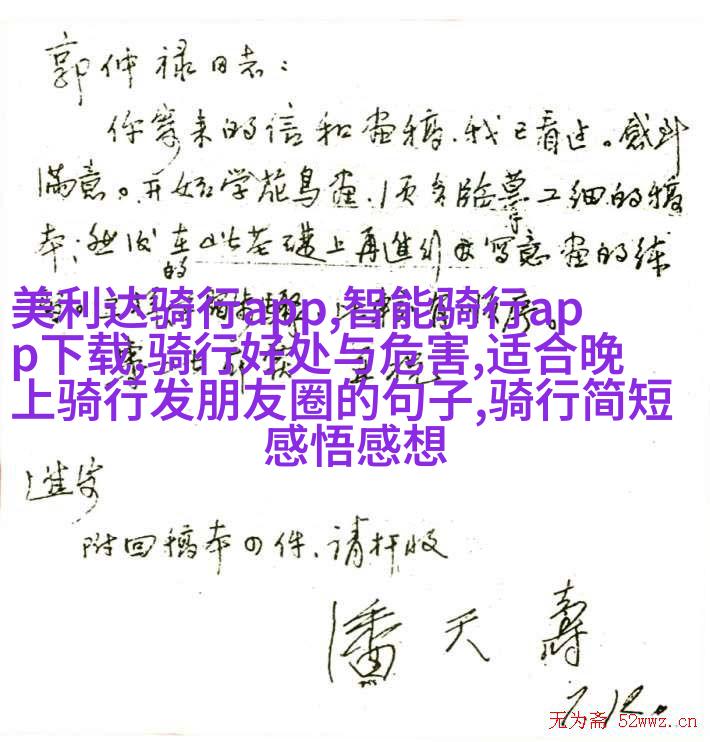 郭仲禄同志：
你寄来的信和画稿，我已看过。感到
满意。开始学花鸟画，须多临摹工细的稿
本；然后在此基础上再进行写意画的练
的
美利达骑行app,智能骑行ap
p下载,骑行好处与危害,适合晚
上骑行发朋友圈的句子,骑行简短
感悟感想
进安
附回稿本四件，请检收
潘天寿
7.12.
无为斋 52wwz.cn